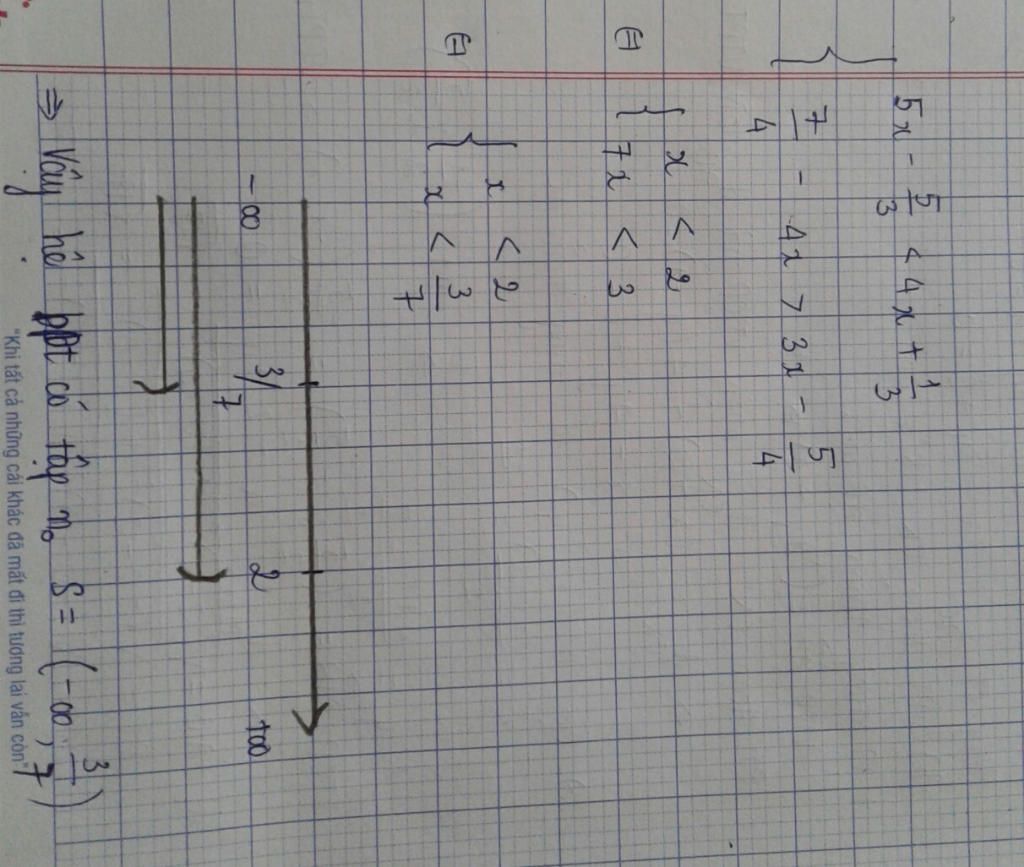 5x - 5/3 < 4x + 1/3
7/4 - 4x > 3x - 5/4
⇔ { x < 2
7x < 3
⇔ { x < 2
x < 3/7
-∞ 3/7 2 +∞
⇒ Vậy hệ bpt có tập n₀ S = (-∞, 3/7)
"Khi tất cả những cái khác đã mất đi thì tương lai vẫn còn"